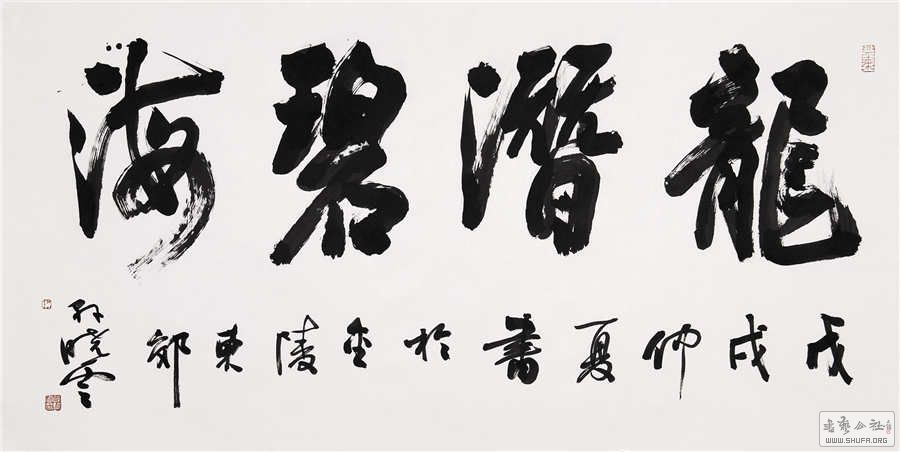 龍潛碧海
戊戌仲夏書於金陵東郊
孙晓云
书艺公社
WWW.SHUFA.ORG